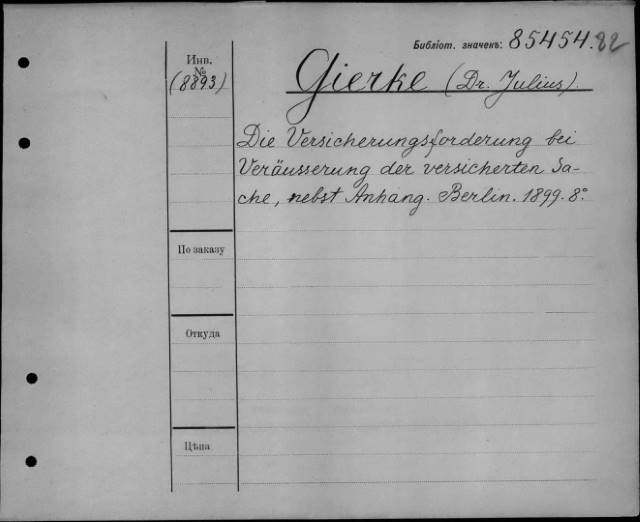 Библіот. значекъ: 85454.82
Инв.
№
(8893)
Gierke (Dr. Julius).
Die Versicherungsforderung bei
Veräusserung der versicherten Sa-
che, nebst Anhang. Berlin. 1899. 8°.
По заказу
Откуда
Цѣна